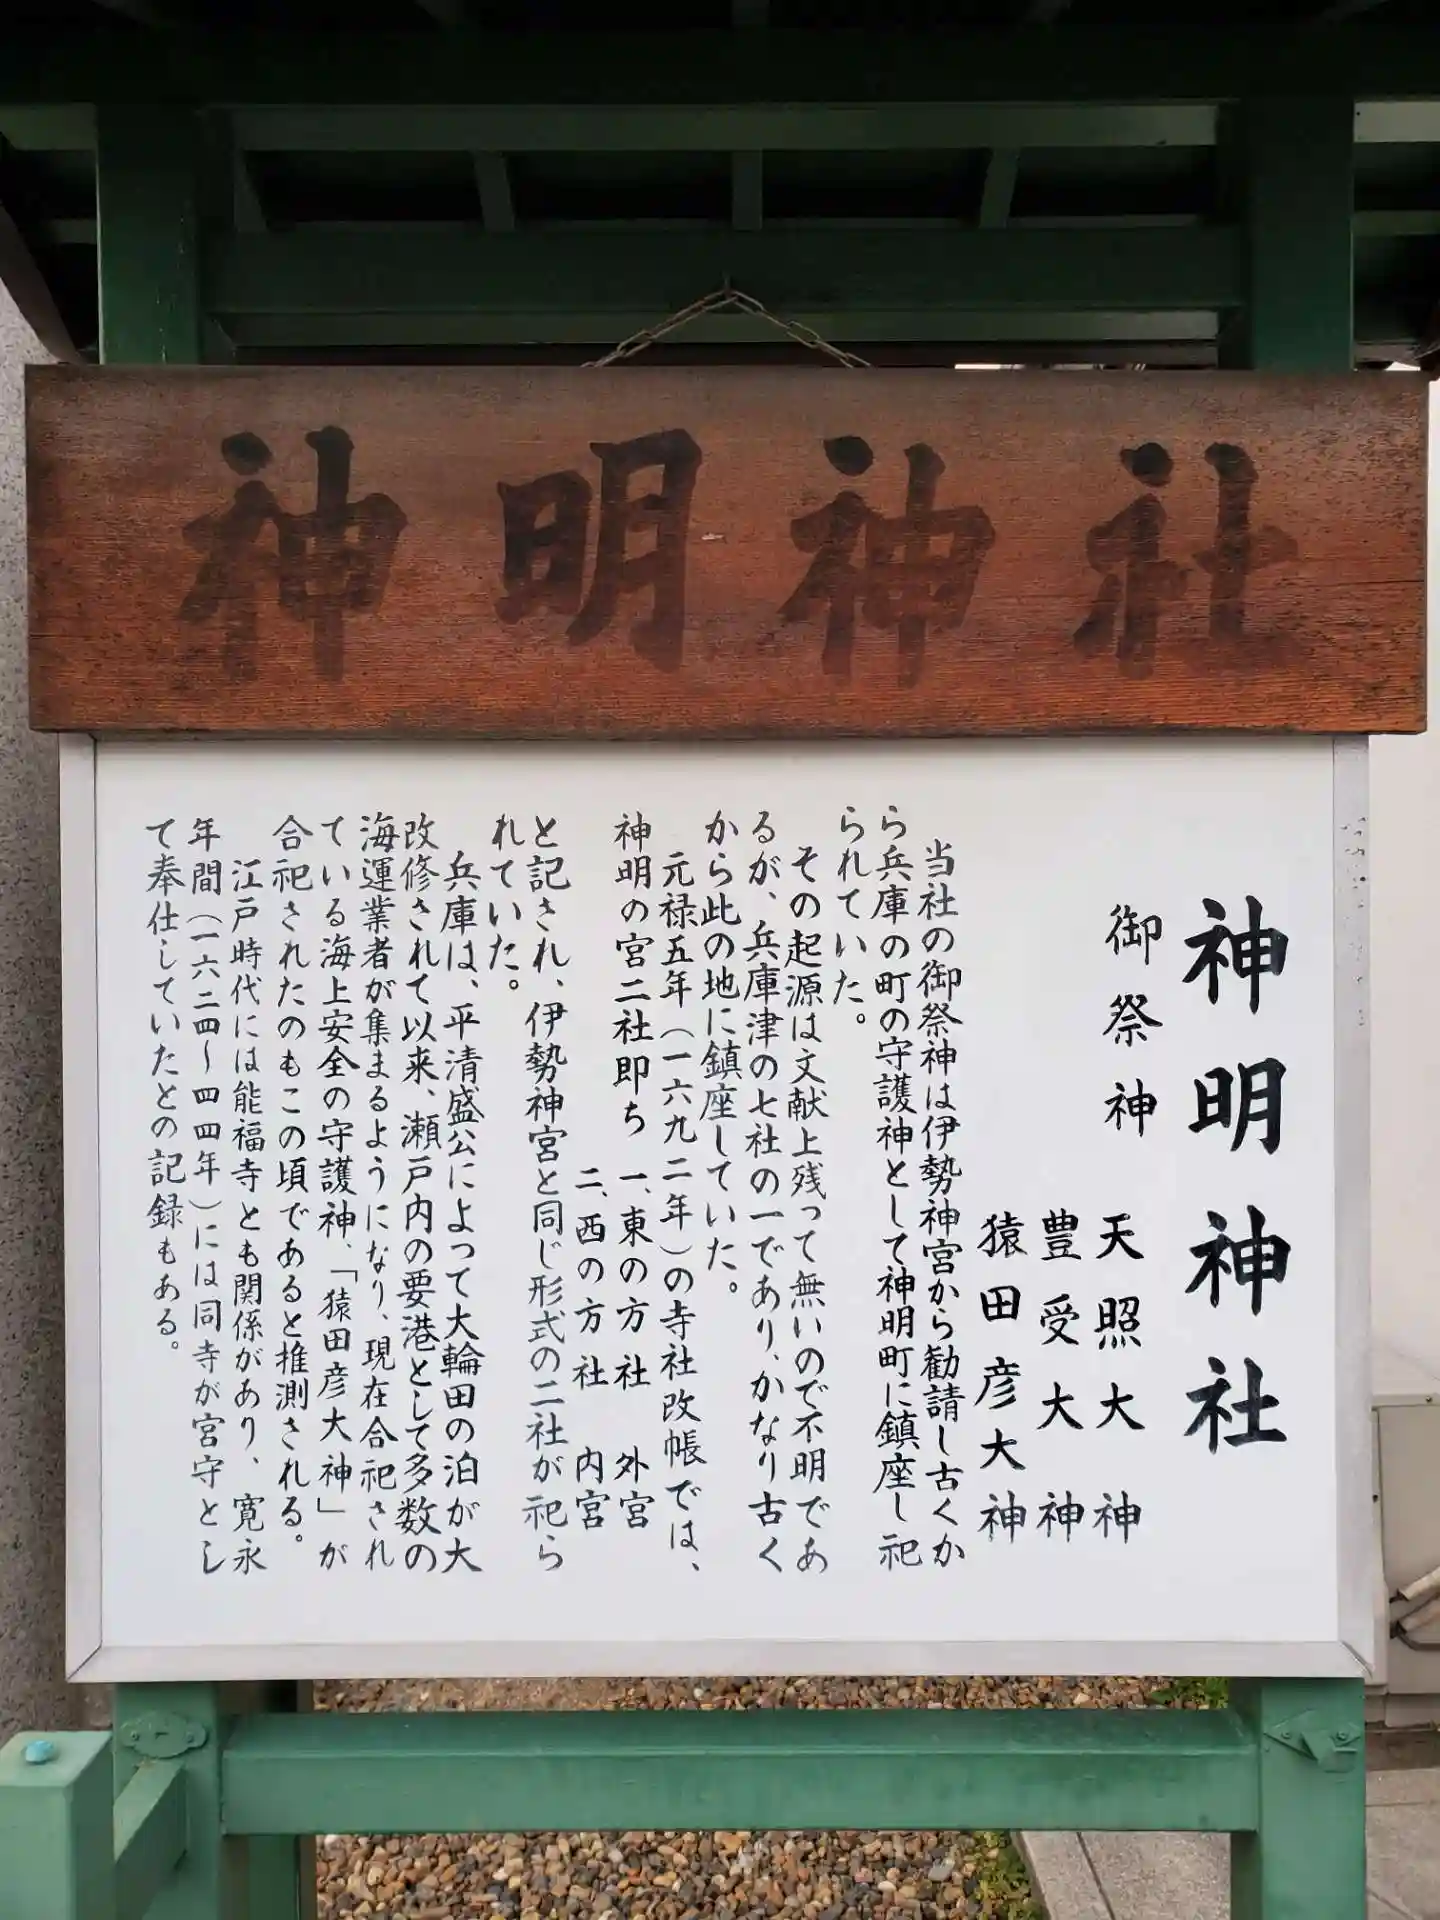 神明神社
神明神社
御祭神 天照大神
豊受大神
猿田彦大神
当社の御祭神は伊勢神宮から勧請し古くか
ら兵庫の町の守護神として神明町に鎮座し祀
られていた。
その起源は文献上残って無いので不明であ
るが、兵庫津の七社の一であり、かなり古く
から此の地に鎮座していた。
元禄五年(一六九二年)の寺社改帳では、
神明の宮二社即ち 一、東の方社 外宮
二、西の方社 内宮
と記され、伊勢神宮と同じ形式の二社が祀ら
れていた。
兵庫は、平清盛公によって大輪田の泊が大
改修されて以来、瀬戸内の要港として多数の
海運業者が集まるようになり、現在合祀され
ている海上安全の守護神、「猿田彦大神」が
合祀されたのもこの頃であると推測される。
江戸時代には能福寺とも関係があり、寛永
年間(一六二四〜四四年)には同寺が宮守とし
て奉仕していたとの記録もある。